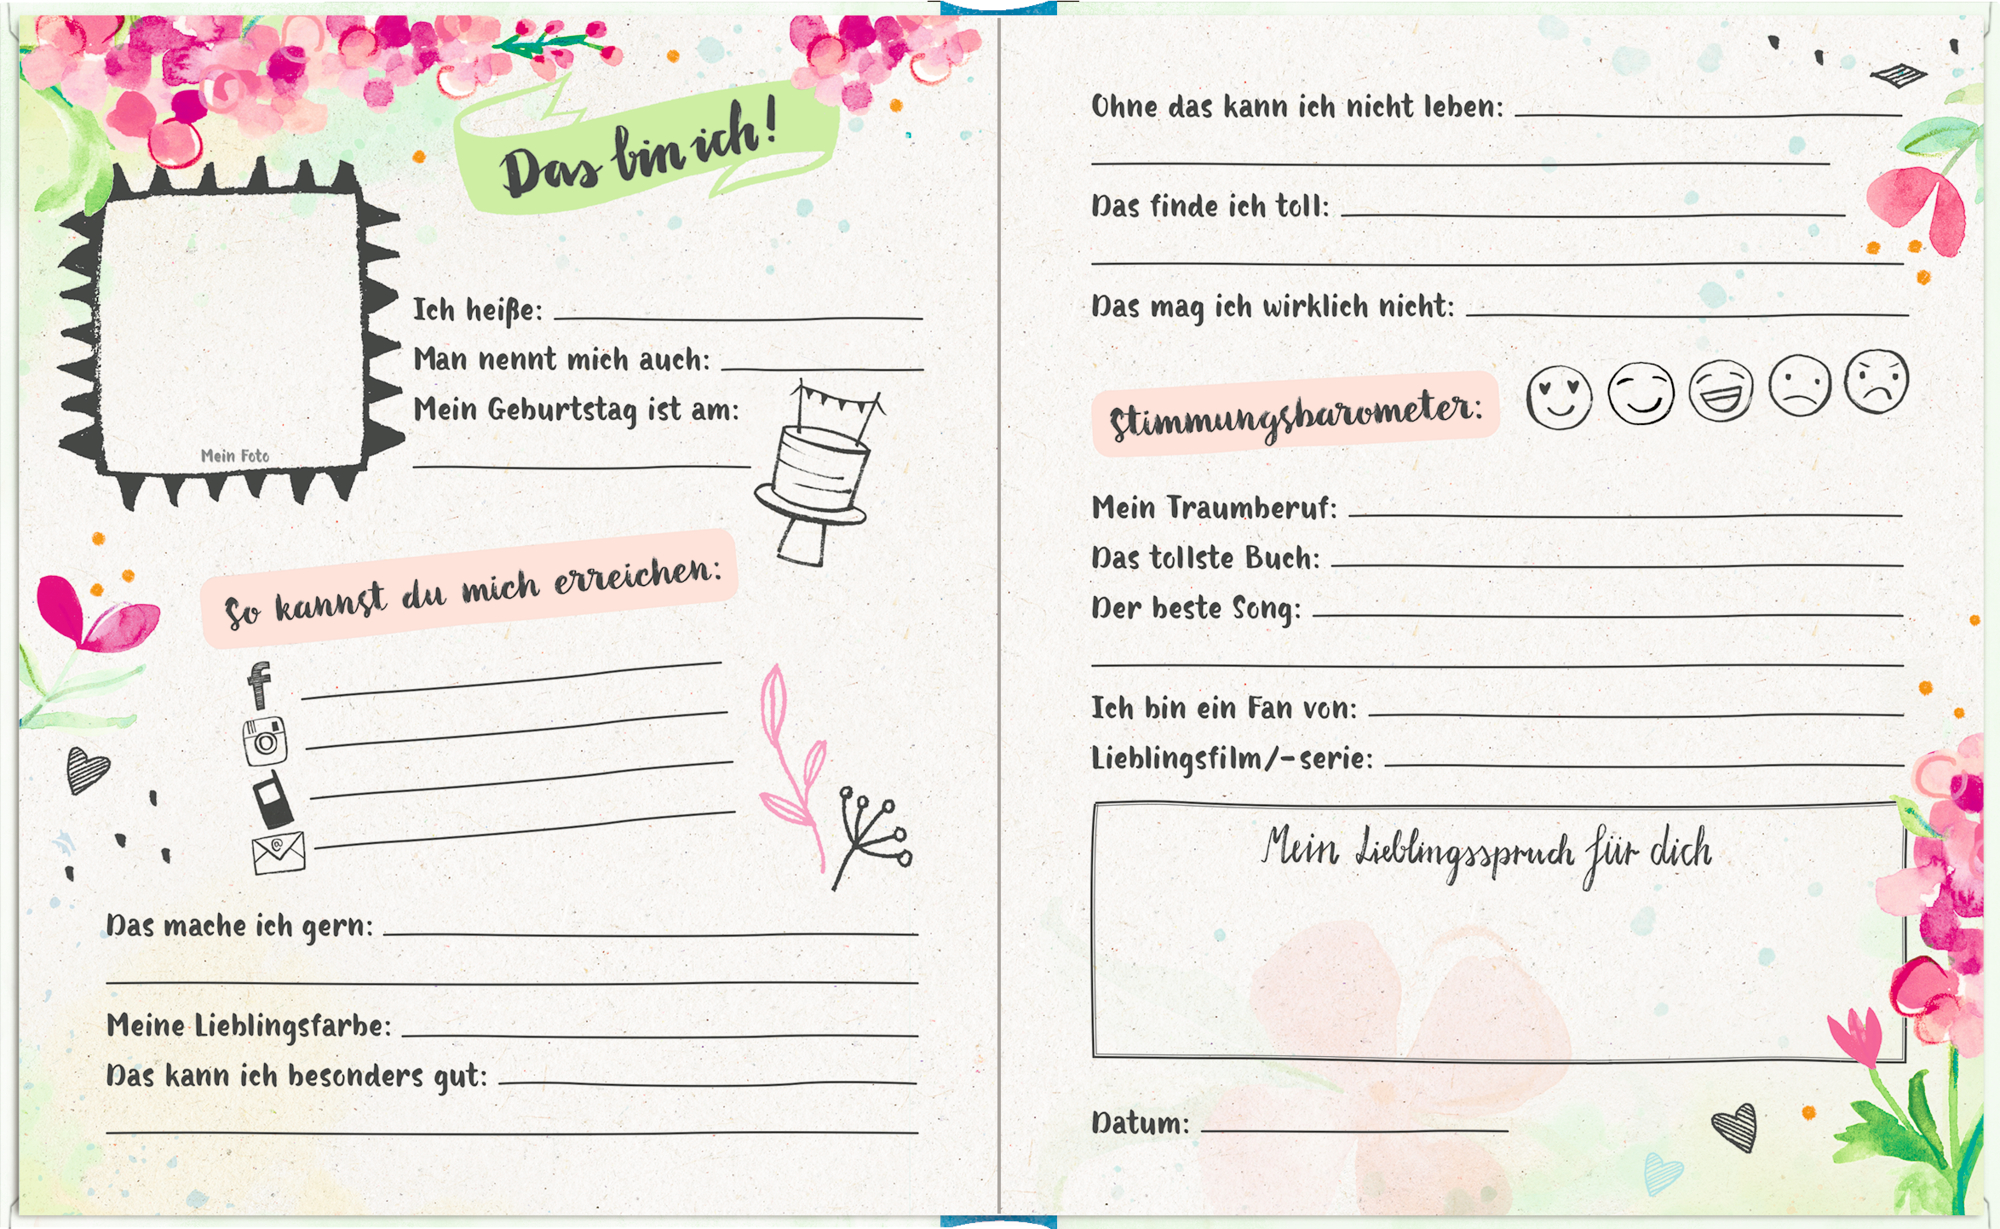 Das bin ich!
Mein Foto
Ich heiße:
Man nennt mich auch:
Mein Geburtstag ist am:
So kannst du mich erreichen:
f
@
Das mache ich gern:
Meine Lieblingsfarbe:
Das kann ich besonders gut:
Ohne das kann ich nicht leben:
Das finde ich toll:
Das mag ich wirklich nicht:
Stimmungsbarometer:
Mein Traumberuf:
Das tollste Buch:
Der beste Song:
Ich bin ein Fan von:
Lieblingsfilm/-serie:
Mein Lieblingsspruch für dich
Datum: